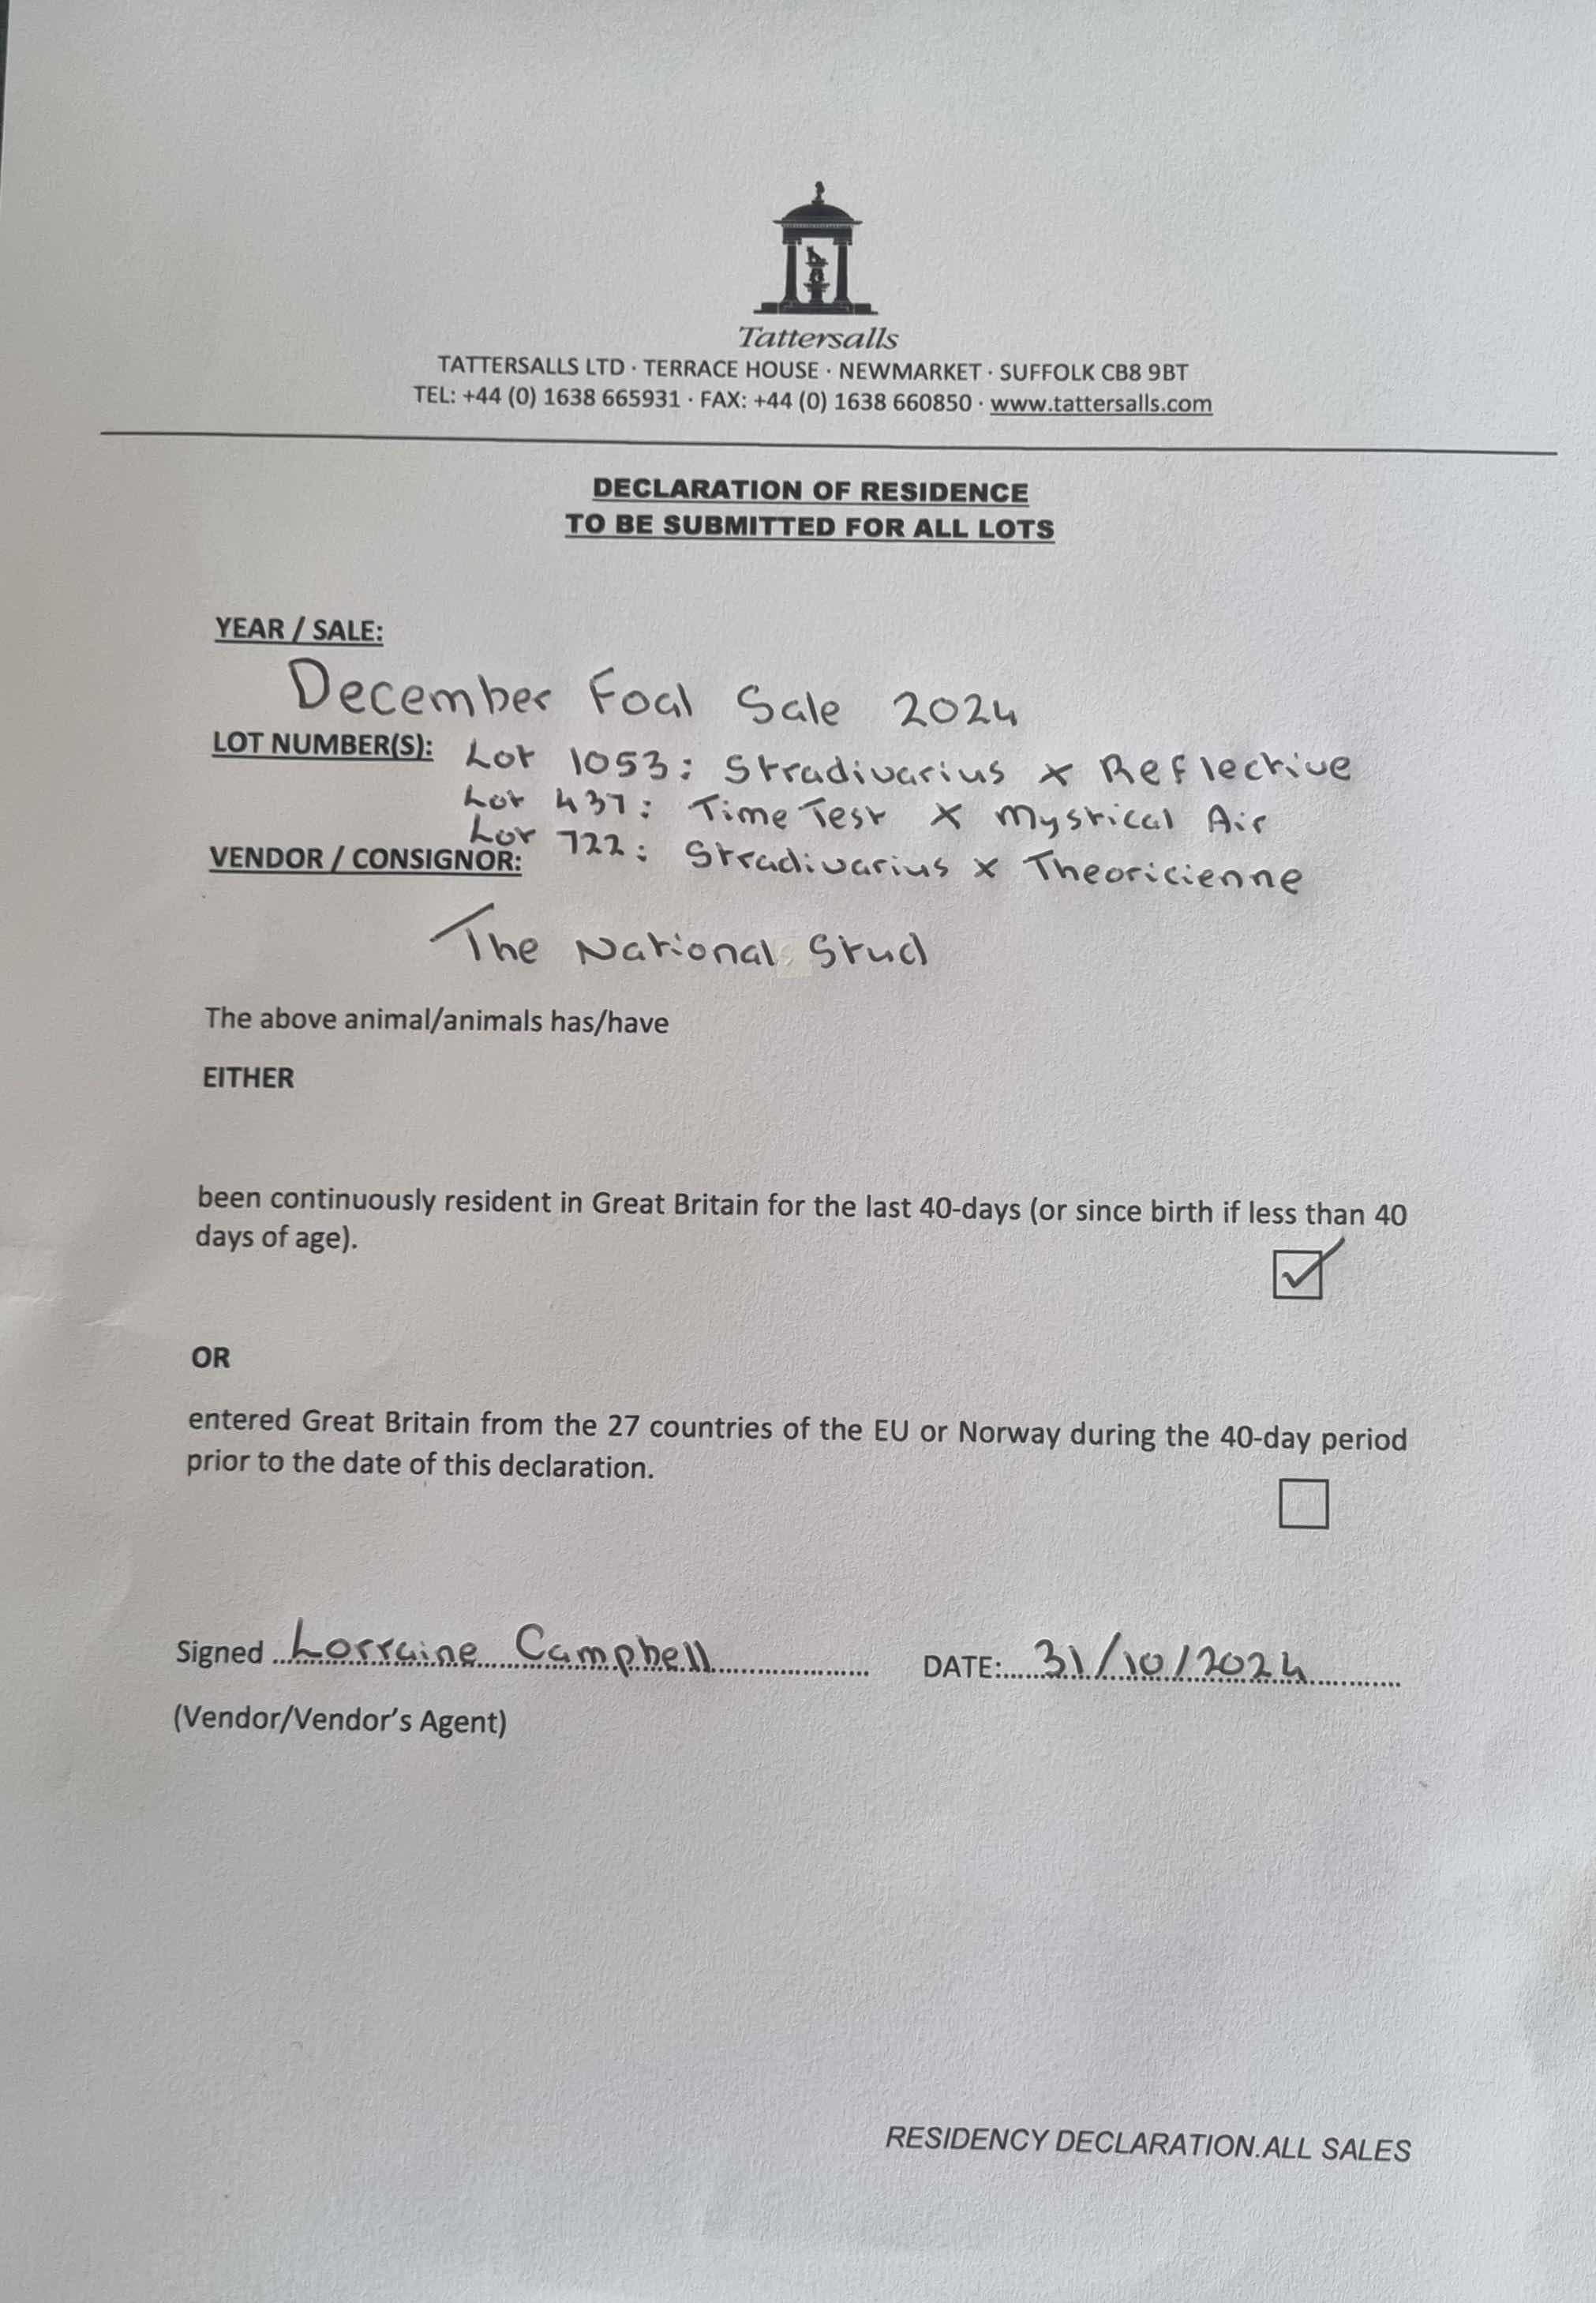 Tattersalls
TATTERSALLS LTD · TERRACE HOUSE · NEWMARKET · SUFFOLK CB8 9BT
TEL: +44 (0) 1638 665931 · FAX: +44 (0) 1638 660850 · www.tattersalls.com
DECLARATION OF RESIDENCE
TO BE SUBMITTED FOR ALL LOTS
YEAR / SALE:
December Foal Sale 2024
LOT NUMBER(S): Lot 1053: Stradivarius x Reflective
Lot 437: Time Test x Mystical Air
Lot 722: Stradivarius x Theoricienne
VENDOR / CONSIGNOR:
The National Stud
The above animal/animals has/have
EITHER
been continuously resident in Great Britain for the last 40-days (or since birth if less than 40
days of age).
OR
entered Great Britain from the 27 countries of the EU or Norway during the 40-day period
prior to the date of this declaration.
Signed Lorraine Campbell DATE: 31/10/2024
(Vendor/Vendor's Agent)
RESIDENCY DECLARATION.ALL SALES